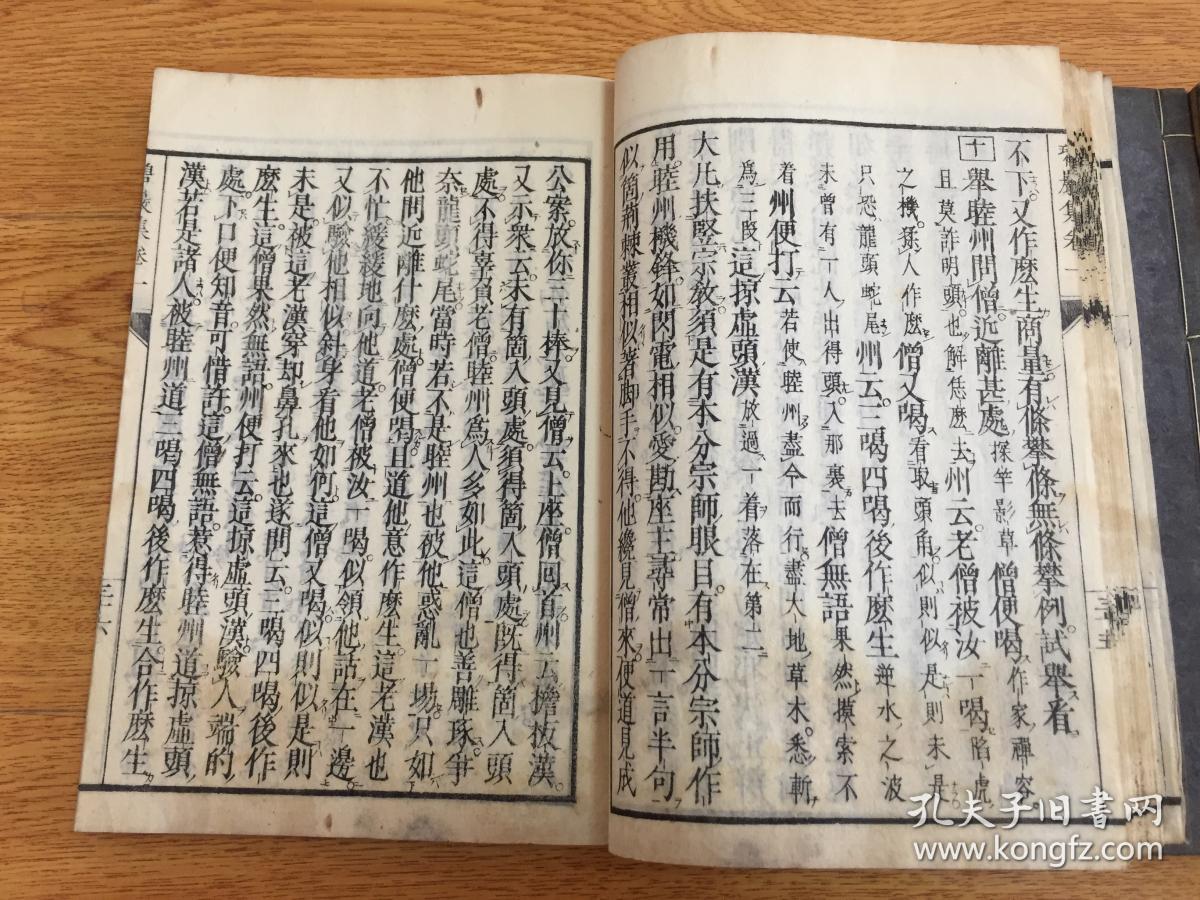 不下又作麽生商量有條攀條無條攀例試擧看
十 擧睦州問僧近離甚處探竿影草僧便喝作家禪客
且莫詐明頭也解恁麽去州云老僧被汝一喝陷虎
之機猱人作麽僧又喝看取頭角似則似是則未是
只恐龍頭蛇尾州云三喝四喝後作麽生逆水之波
未曾有一人出得頭入那裏去僧無語果然摸索不
着州便打云若使睦州盡令而行盡大地草木悉斬
爲三段這掠虛頭漢放過一着落在第二
大凡扶竪宗敎須是有本分宗師眼目有本分宗師作
用睦州機鋒如閃電相似愛勘座主尋常出一言半句
似箇荊棘叢相似著脚手不得他纔見僧來便道見成
公案放你三十棒又見僧云上座僧回首州云擔板漢
又示衆云未有箇入頭處須得箇入頭處旣得箇入頭
處不得辜負老僧睦州爲人多如此這僧也善雕琢爭
奈龍頭蛇尾當時若不是睦州也被他惑亂一場只如
他問近離什麽處僧便喝且道他意作麽生這老漢也
不忙緩緩地向他道老僧被汝一喝似領他話在一邊
又似驗他相似斜身看他如何這僧又喝似則似是則
未是被這老漢穿却鼻孔來也遂問云三喝四喝後作
麽生這僧果然無語州便打云這掠虛頭漢驗人端的
處下口便知音可惜許這僧無語惹得睦州道掠虛頭
漢若是諸人被睦州道三喝四喝後作麽生合作麽生
碧巖集卷一
二十六
孔夫子旧书网
www.kongfz.com